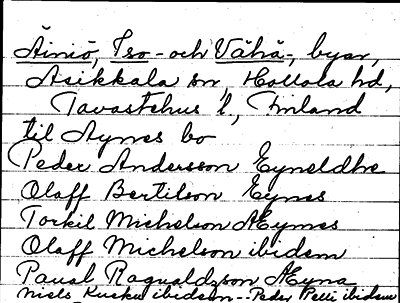 Äiniö, Iso- och Vähä-, byar,
Asikkala sn, Hollola hd,
Tavastehus l., Finland
til Aynes bo
Peder Andersson Eyneldhe
Olaff Bertilson Eynes
Torkil Michelson Æynes
Olaff Michelson ibidem
Paual Ragualdzson Æyna
Niels Kusku ibidem -- Peder Pelli ibidem